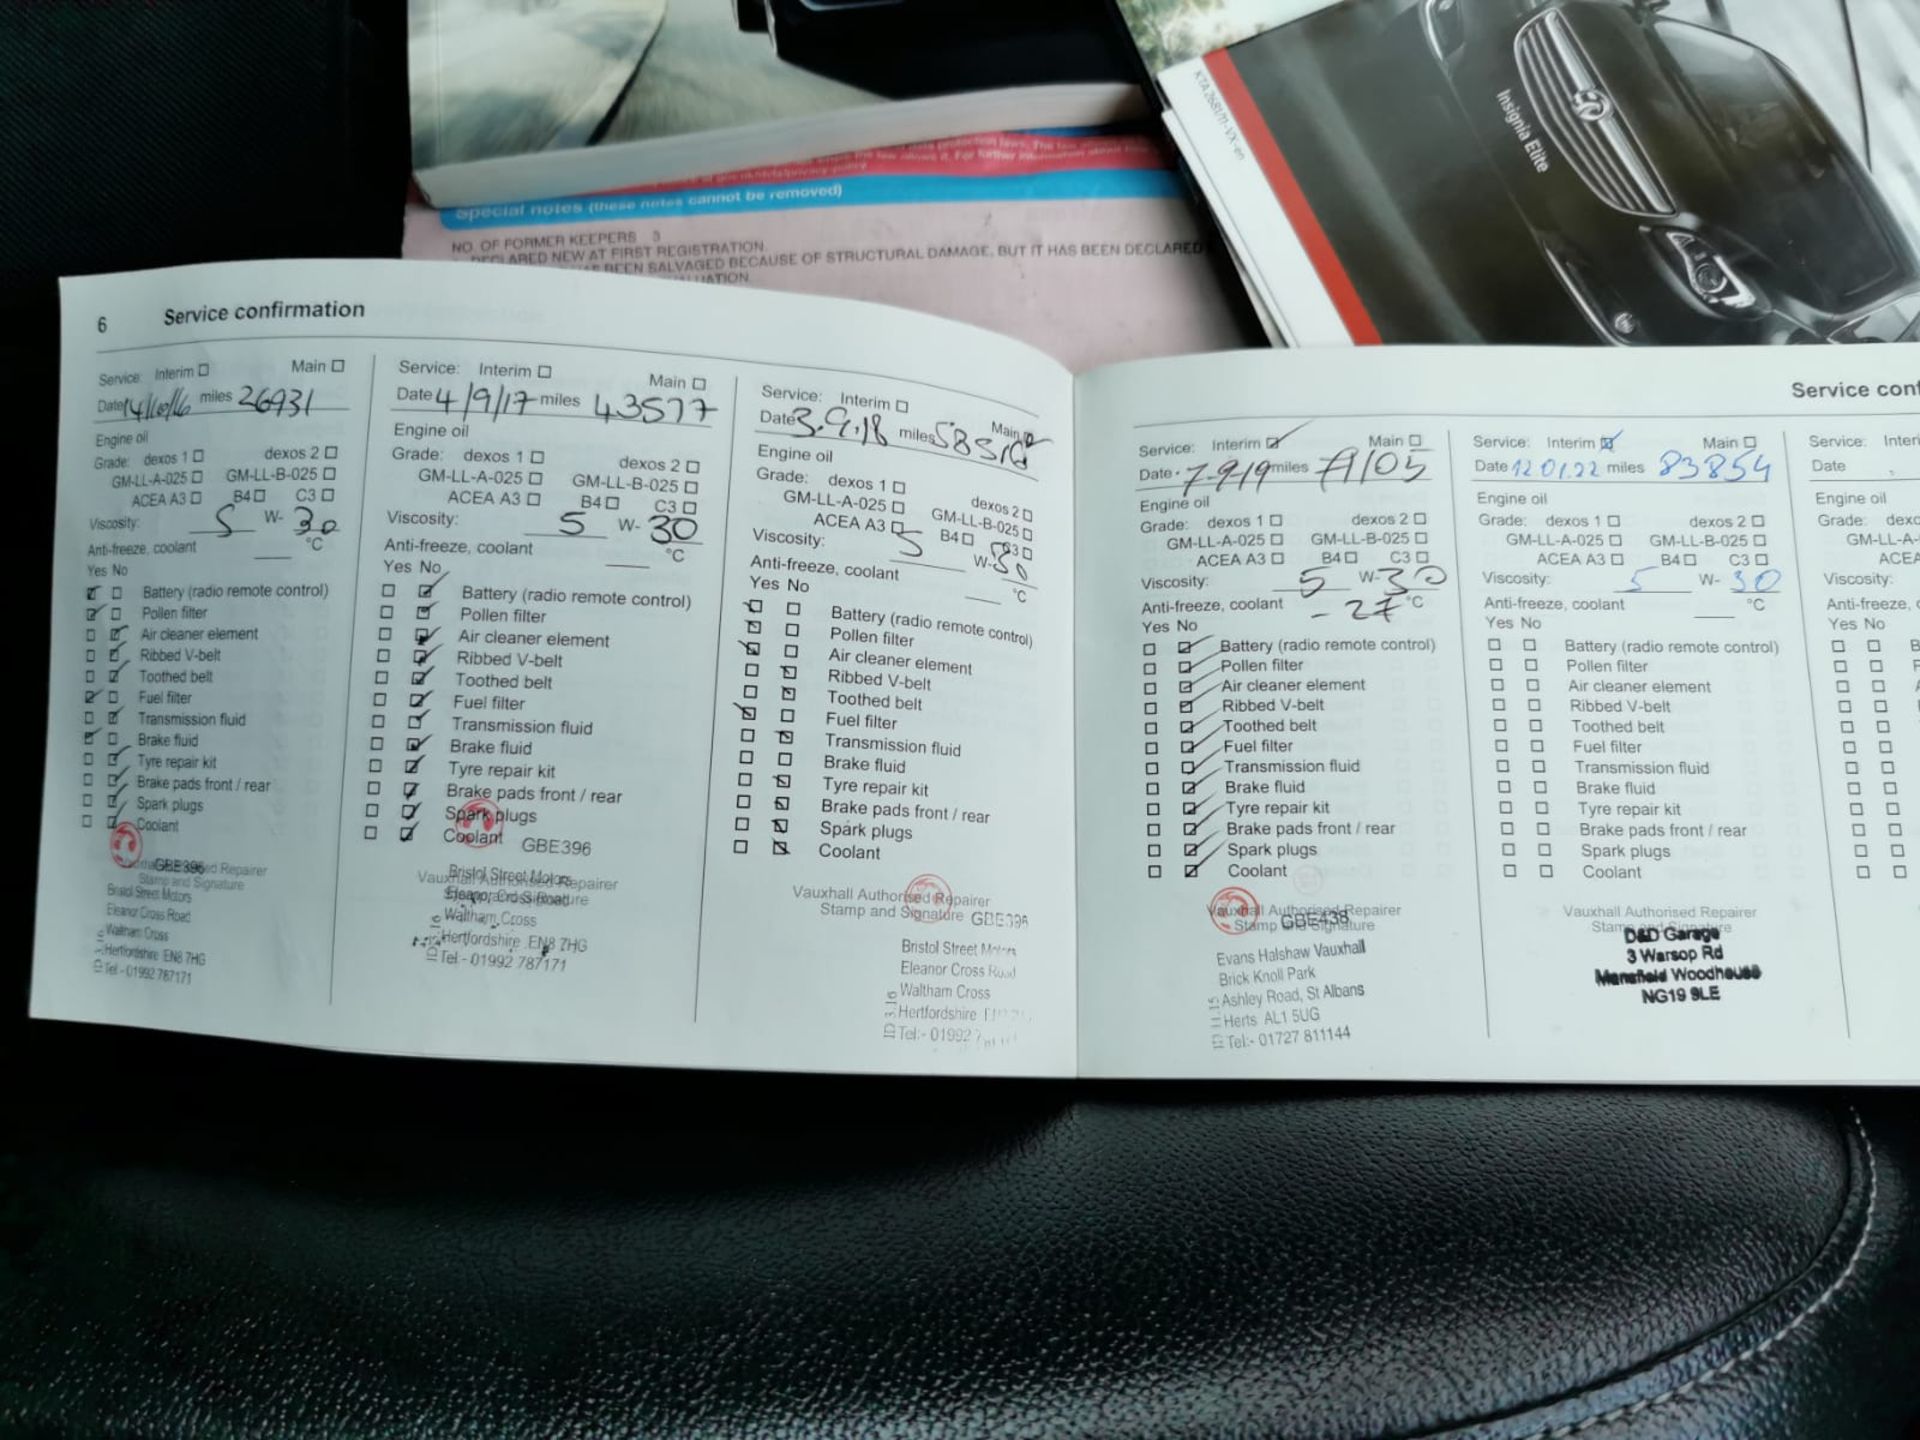 KTA 2681/11-VX-en
Insignia Elite
Special notes (these notes cannot be removed)
NO. OF FORMER KEEPERS 3
DECLARED NEW AT FIRST REGISTRATION.
BEEN SALVAGED BECAUSE OF STRUCTURAL DAMAGE, BUT IT HAS BEEN DECLARED
6 Service confirmation
Service: Interim Main
Date 14/10/16 miles 26931
Engine oil
Grade: dexos 1 dexos 2
GM-LL-A-025 GM-LL-B-025
ACEA A3 B4 C3
Viscosity: 5 W- 30
Anti-freeze, coolant °C
Yes No
Battery (radio remote control)
Pollen filter
Air cleaner element
Ribbed V-belt
Toothed belt
Fuel filter
Transmission fluid
Brake fluid
Tyre repair kit
Brake pads front / rear
Spark plugs
Coolant
GBE396
Repairer
Stamp and Signature
Bristol Street Motors
Eleanor Cross Road
Waltham Cross
Hertfordshire EN8 7HG
Tel:- 01992 787171
Service: Interim Main
Date 4/9/17 miles 43577
Engine oil
Grade: dexos 1 dexos 2
GM-LL-A-025 GM-LL-B-025
ACEA A3 B4 C3
Viscosity: 5 W- 30
Anti-freeze, coolant °C
Yes No
Battery (radio remote control)
Pollen filter
Air cleaner element
Ribbed V-belt
Toothed belt
Fuel filter
Transmission fluid
Brake fluid
Tyre repair kit
Brake pads front / rear
Spark plugs
Coolant GBE396
Bristol Street Motors
Vauxhall Authorised Repairer
Waltham Cross
Hertfordshire EN8 7HG
Tel:- 01992 787171
Service: Interim Main
Date 3.9.18 miles
Engine oil
Grade: dexos 1 dexos 2
GM-LL-A-025 GM-LL-B-025
ACEA A3 B4 C3
Viscosity: 5 W- 30
Anti-freeze, coolant °C
Yes No
Battery (radio remote control)
Pollen filter
Air cleaner element
Ribbed V-belt
Toothed belt
Fuel filter
Transmission fluid
Brake fluid
Tyre repair kit
Brake pads front / rear
Spark plugs
Coolant
Vauxhall Authorised Repairer
Stamp and Signature GBE396
Bristol Street Motors
Eleanor Cross Road
Waltham Cross
Hertfordshire
Tel:- 01992
Service: Interim Main
Date 7-9-19 miles 71105
Engine oil
Grade: dexos 1 dexos 2
GM-LL-A-025 GM-LL-B-025
ACEA A3 B4 C3
Viscosity: 5 W- 30
Anti-freeze, coolant -27 °C
Yes No
Battery (radio remote control)
Pollen filter
Air cleaner element
Ribbed V-belt
Toothed belt
Fuel filter
Transmission fluid
Brake fluid
Tyre repair kit
Brake pads front / rear
Spark plugs
Coolant
Vauxhall Authorised Repairer
Stamp and Signature GBE438
Evans Halshaw Vauxhall
Brick Knoll Park
Ashley Road, St Albans
Herts AL1 5UG
Tel:- 01727 811144
Service: Interim Main
Date 12.01.22 miles 83854
Engine oil
Grade: dexos 1 dexos 2
GM-LL-A-025 GM-LL-B-025
ACEA A3 B4 C3
Viscosity: 5 W- 30
Anti-freeze, coolant °C
Yes No
Battery (radio remote control)
Pollen filter
Air cleaner element
Ribbed V-belt
Toothed belt
Fuel filter
Transmission fluid
Brake fluid
Tyre repair kit
Brake pads front / rear
Spark plugs
Coolant
Vauxhall Authorised Repairer
Stamp and Signature
D&D Garage
3 Warsop Rd
Mansfield Woodhouse
NG19 9LE
Service conf
Service: Inter
Date
Engine oil
Grade: dexo
GM-LL-A-
ACEA
Viscosity:
Anti-freeze,
Yes No